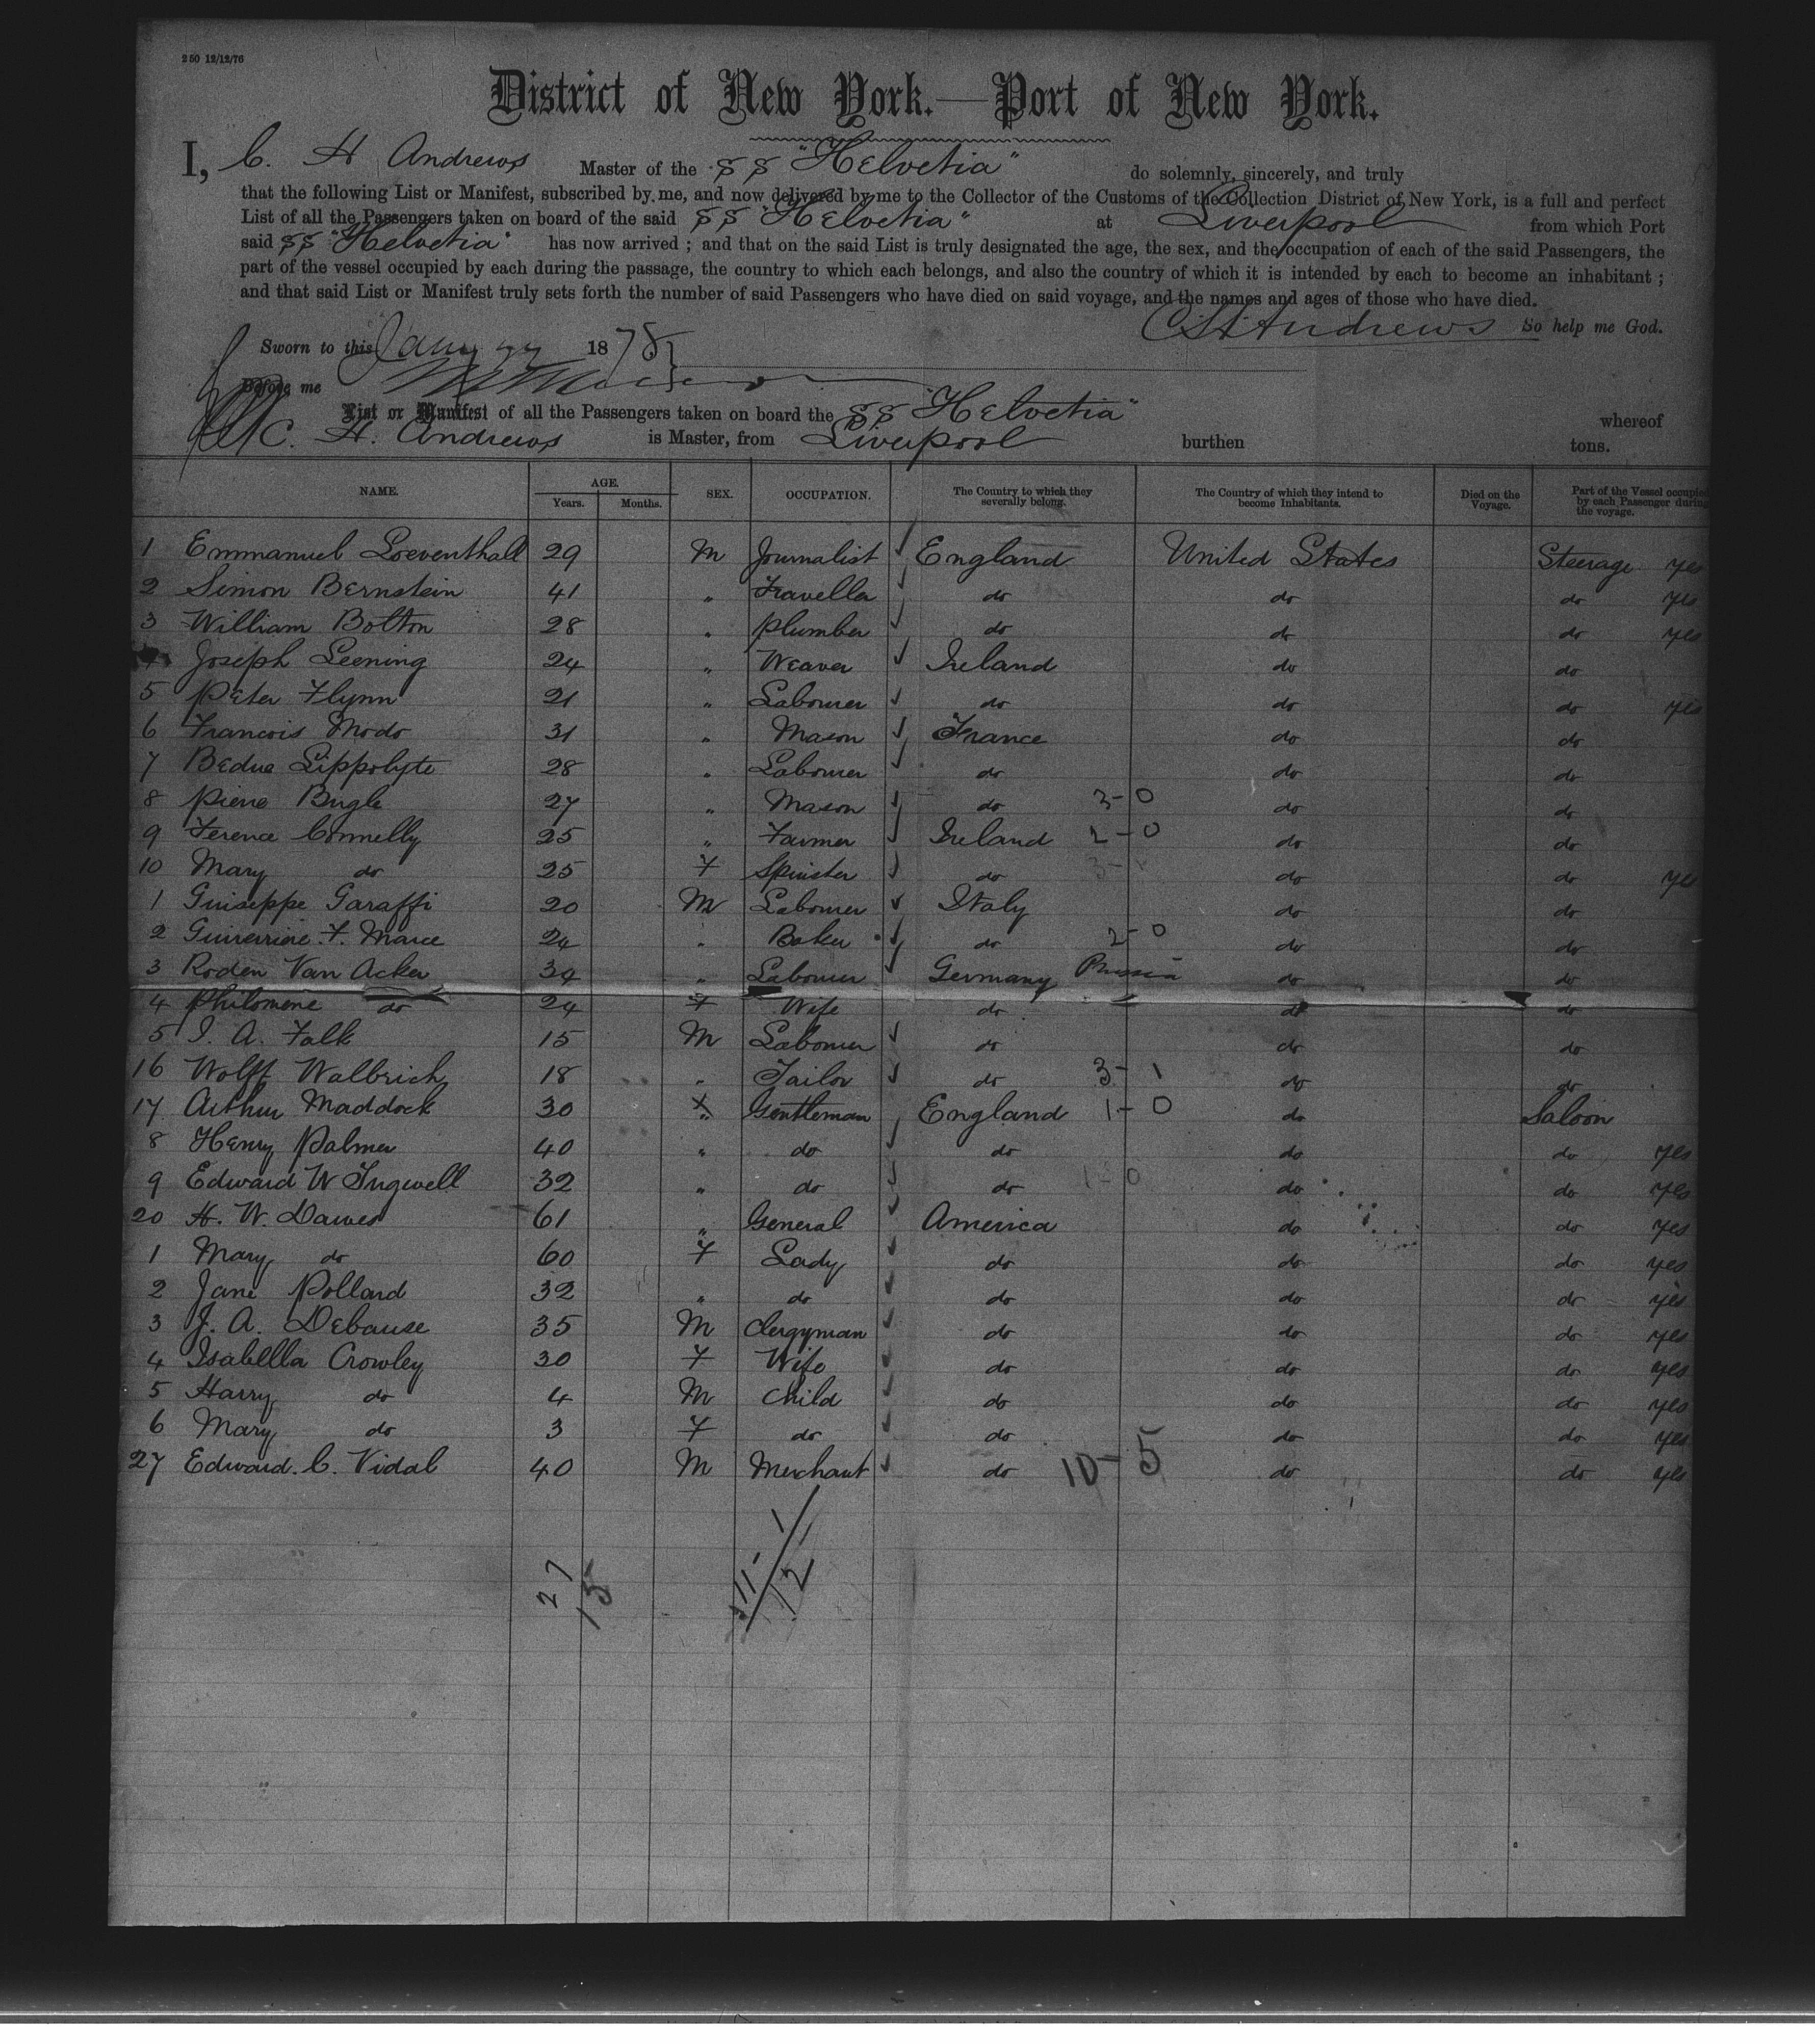 250 12/12/76
District of New York.—Port of New York.
I, C. H Andrews Master of the SS "Helvetia" do solemnly, sincerely, and truly
that the following List or Manifest, subscribed by me, and now delivered by me to the Collector of the Customs of the Collection District of New York, is a full and perfect
List of all the Passengers taken on board of the said SS "Helvetia" at Liverpool from which Port
said SS "Helvetia" has now arrived ; and that on the said List is truly designated the age, the sex, and the occupation of each of the said Passengers, the
part of the vessel occupied by each during the passage, the country to which each belongs, and also the country of which it is intended by each to become an inhabitant ;
and that said List or Manifest truly sets forth the number of said Passengers who have died on said voyage, and the names and ages of those who have died.
C H Andrews So help me God.
Sworn to this Jany 1878
Before me
List or Manifest of all the Passengers taken on board the SS "Helvetia" whereof
C. H. Andrews is Master, from Liverpool burthen tons.
NAME. AGE. Years. Months. SEX. OCCUPATION. The Country to which they severally belong. The Country of which they intend to become Inhabitants. Died on the Voyage. Part of the Vessel occupied by each Passenger during the voyage.
1 Emmanuel Loeventhall 29 M Journalist England United States Steerage yes
2 Simon Bernstein 41 " Traveller do do do yes
3 William Bolton 28 " plumber do do do yes
4 Joseph Leening 24 " Weaver Ireland do do
5 Peter Flynn 21 " Labourer do do do yes
6 Francois Modo 31 " Mason France do do
7 Bedue Lippolyte 28 " Labourer do do do
8 Pierre Bugle 27 " Mason do 3-0 do do
9 Terence Connelly 25 " Farmer Ireland 2-0 do do
10 Mary do 25 F Spinster do do do yes
1 Guiseppe Garaffi 20 M Labourer Italy do do
2 F. Marce 24 " Baker do 2-0 do do
3 Roden Van Acker 34 " Labourer Germany Prussia do do
4 Philomene do 24 F Wife do do do
5 I. A. Falk 15 M Labourer do do do
16 Wolff Walbrich 18 " Tailor do 3-1 do do
17 Arthur Maddock 30 " Gentleman England 1-0 do Saloon
8 Henry Palmer 40 " do do do do yes
9 Edward W Ingwell 32 " do do 1-0 do do yes
20 H. W. Dawes 61 " General America do do yes
1 Mary do 60 F Lady do do do yes
2 Jane Pollard 32 " do do do do yes
3 J. A. Debause 35 M Clergyman do do do yes
4 Isabella Crowley 30 F Wife do do do yes
5 Harry do 4 M Child do do do yes
6 Mary do 3 F do do do do yes
27 Edward. C. Vidal 40 M Merchant do 10-5 do do yes
27
15
11-1
12